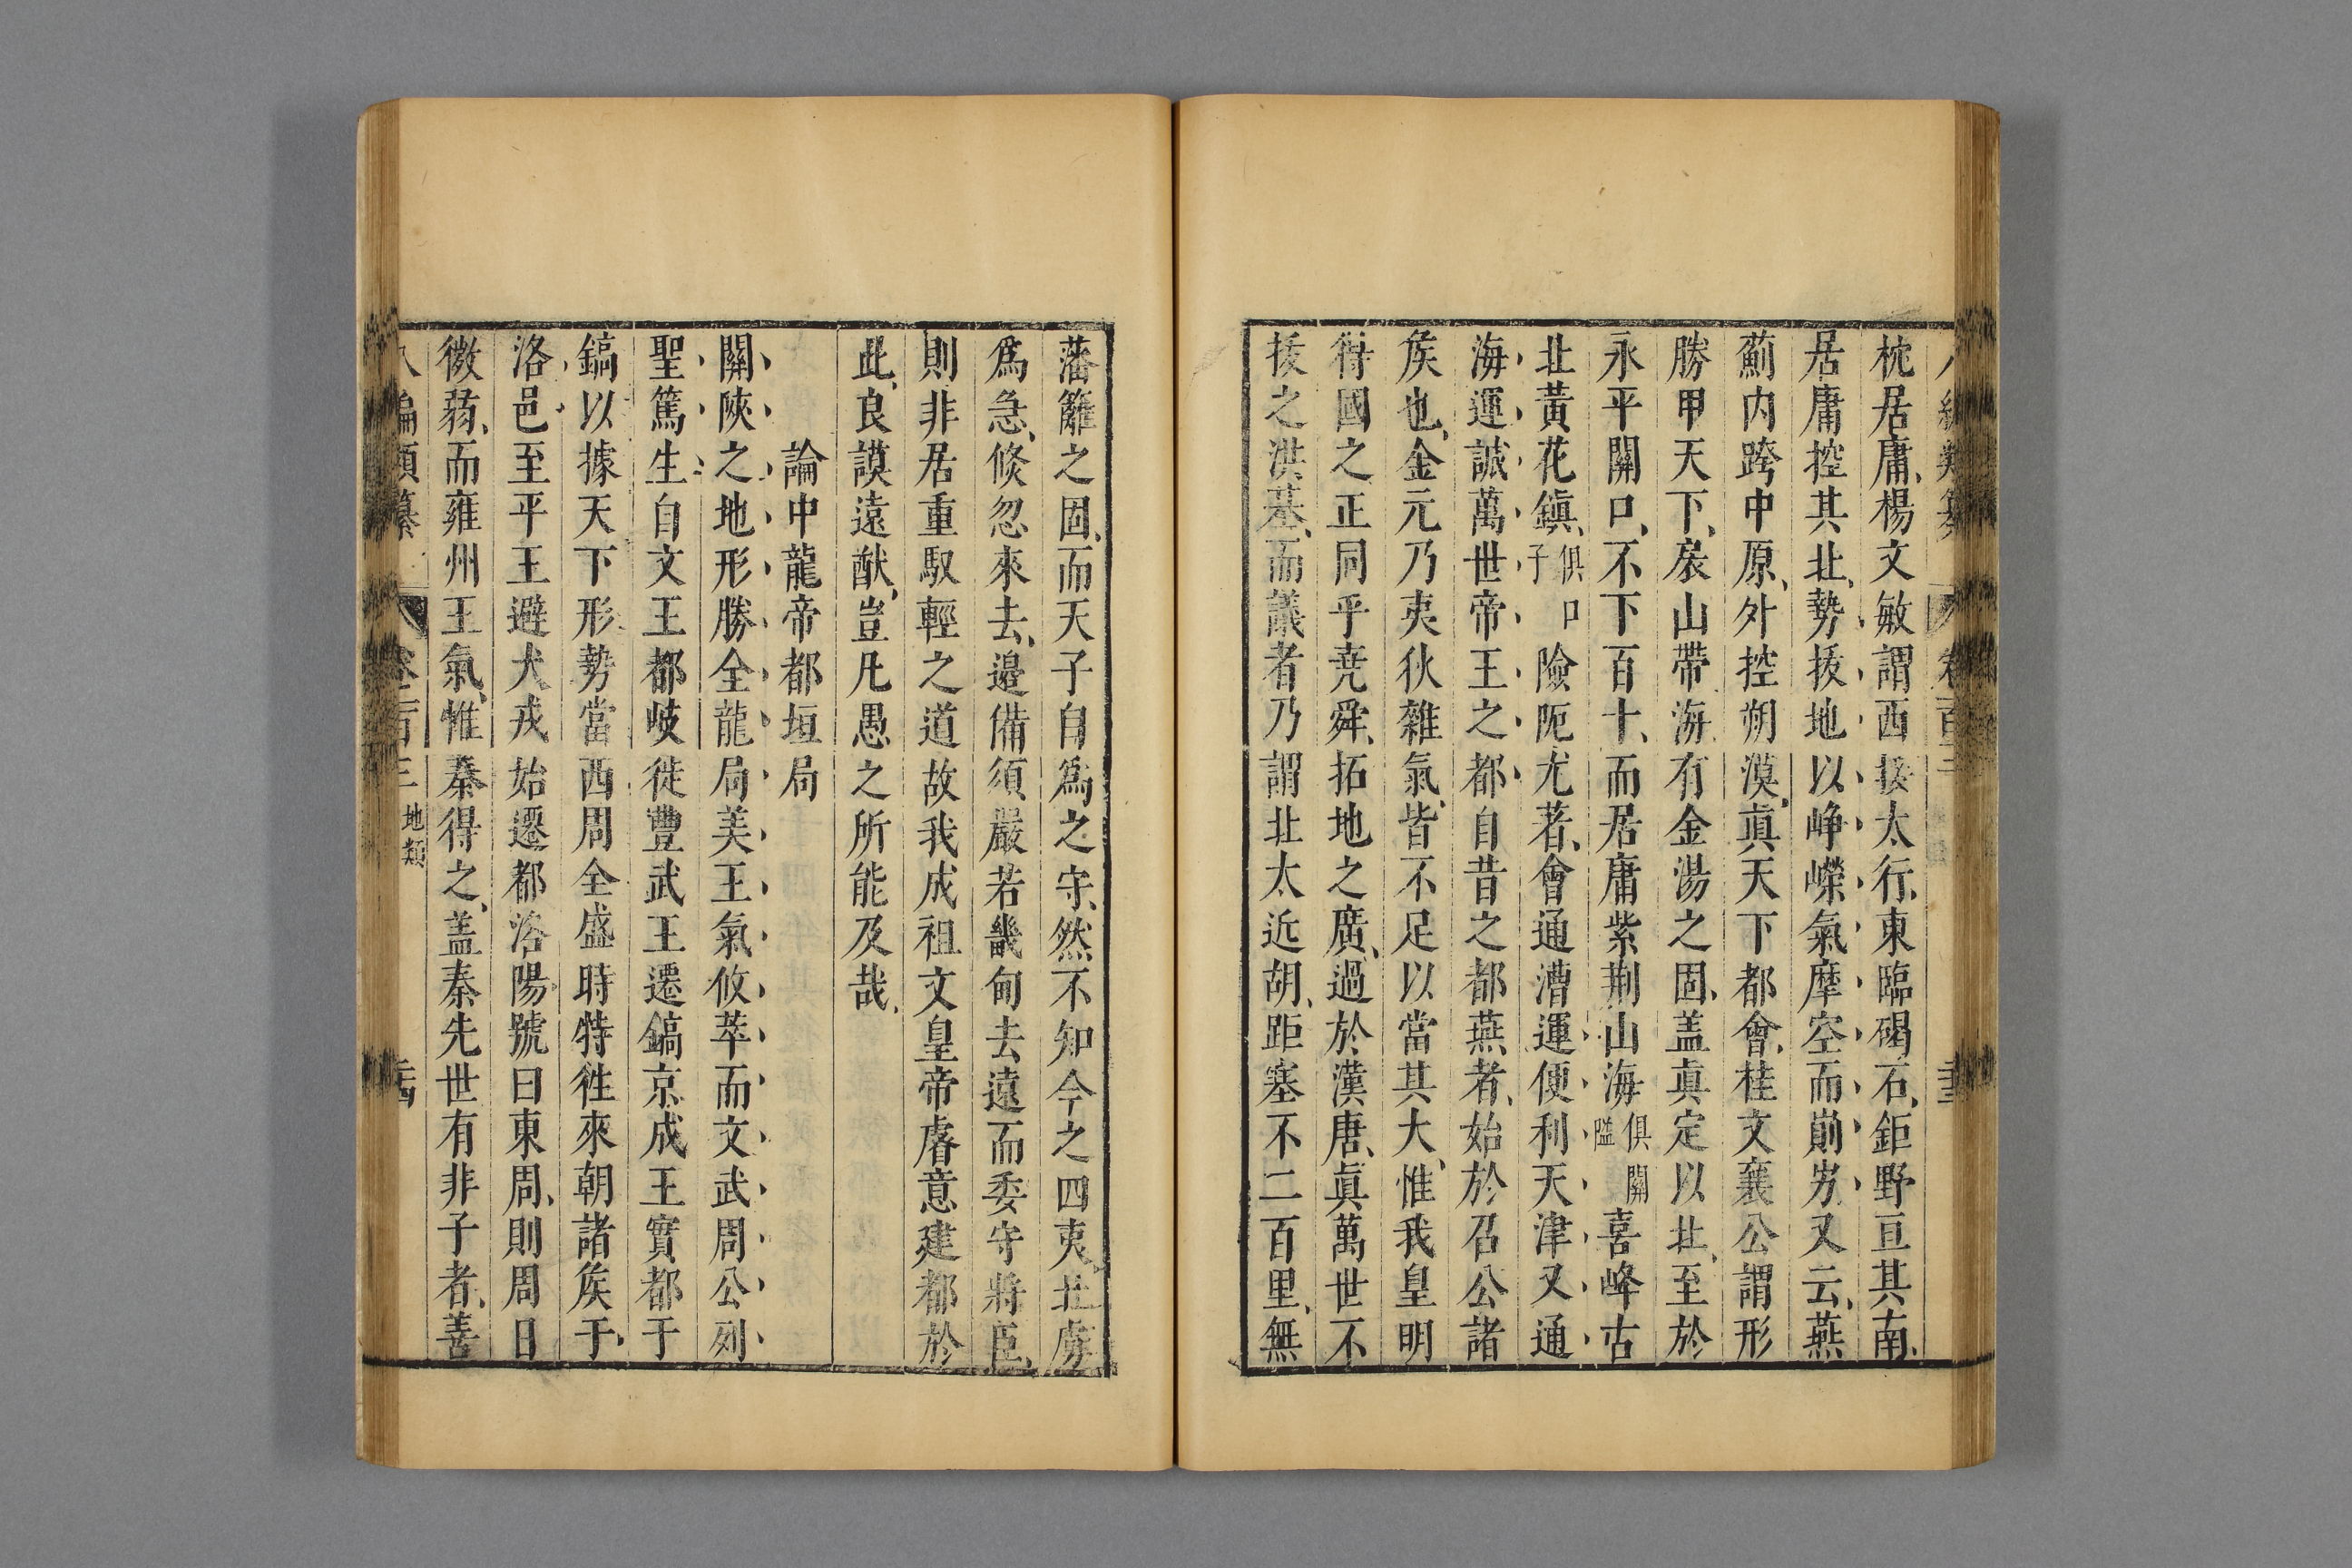 枕居庸、楊文敏謂西接太行、東臨碣石、鉅野亘其南、
居庸控其北、勢拔地以崢嶸、氣摩空而崱屴、又云、燕
薊內跨中原、外控朔漠、眞天下都會、桂文襄公謂形
勝甲天下、扆山帶海、有金湯之固、盖眞定以北、至於
永平關口、不下百十、而居庸紫荆山海俱關隘喜峰古
北黃花鎮、俱口子險阨尤著、會通漕運便利天津又通
海運誠萬世帝王之都自昔之都燕者、始於召公諸
矦也、金元乃夷狄雜氣、皆不足以當其大、惟我皇明
得國之正同乎堯舜、拓地之廣、過於漢唐、眞萬世不
拔之洪基、而議者乃謂北太近胡、距塞不二百里、無
藩籬之固、而天子自爲之守、然不知今之四夷、北虜
爲急、倐忽來去、邉備須嚴若畿甸去遠而委守將臣、
則非居重馭輕之道故我成祖文皇帝睿意建都於
此、良謨遠猷、豈凡愚之所能及哉、
論中龍帝都垣局
關陝之地形勝全龍局美王氣攸萃而文武周公列
聖篤生自文王都岐徙豐武王遷鎬京成王實都于
鎬以據天下形勢當西周全盛時特徃來朝諸矦于
洛邑至平王避犬戎始遷都洛陽號曰東周、則周日
微蒻、而雍州王氣、惟秦得之、盖秦先世有非子者、善
八編類纂 卷百三 地類